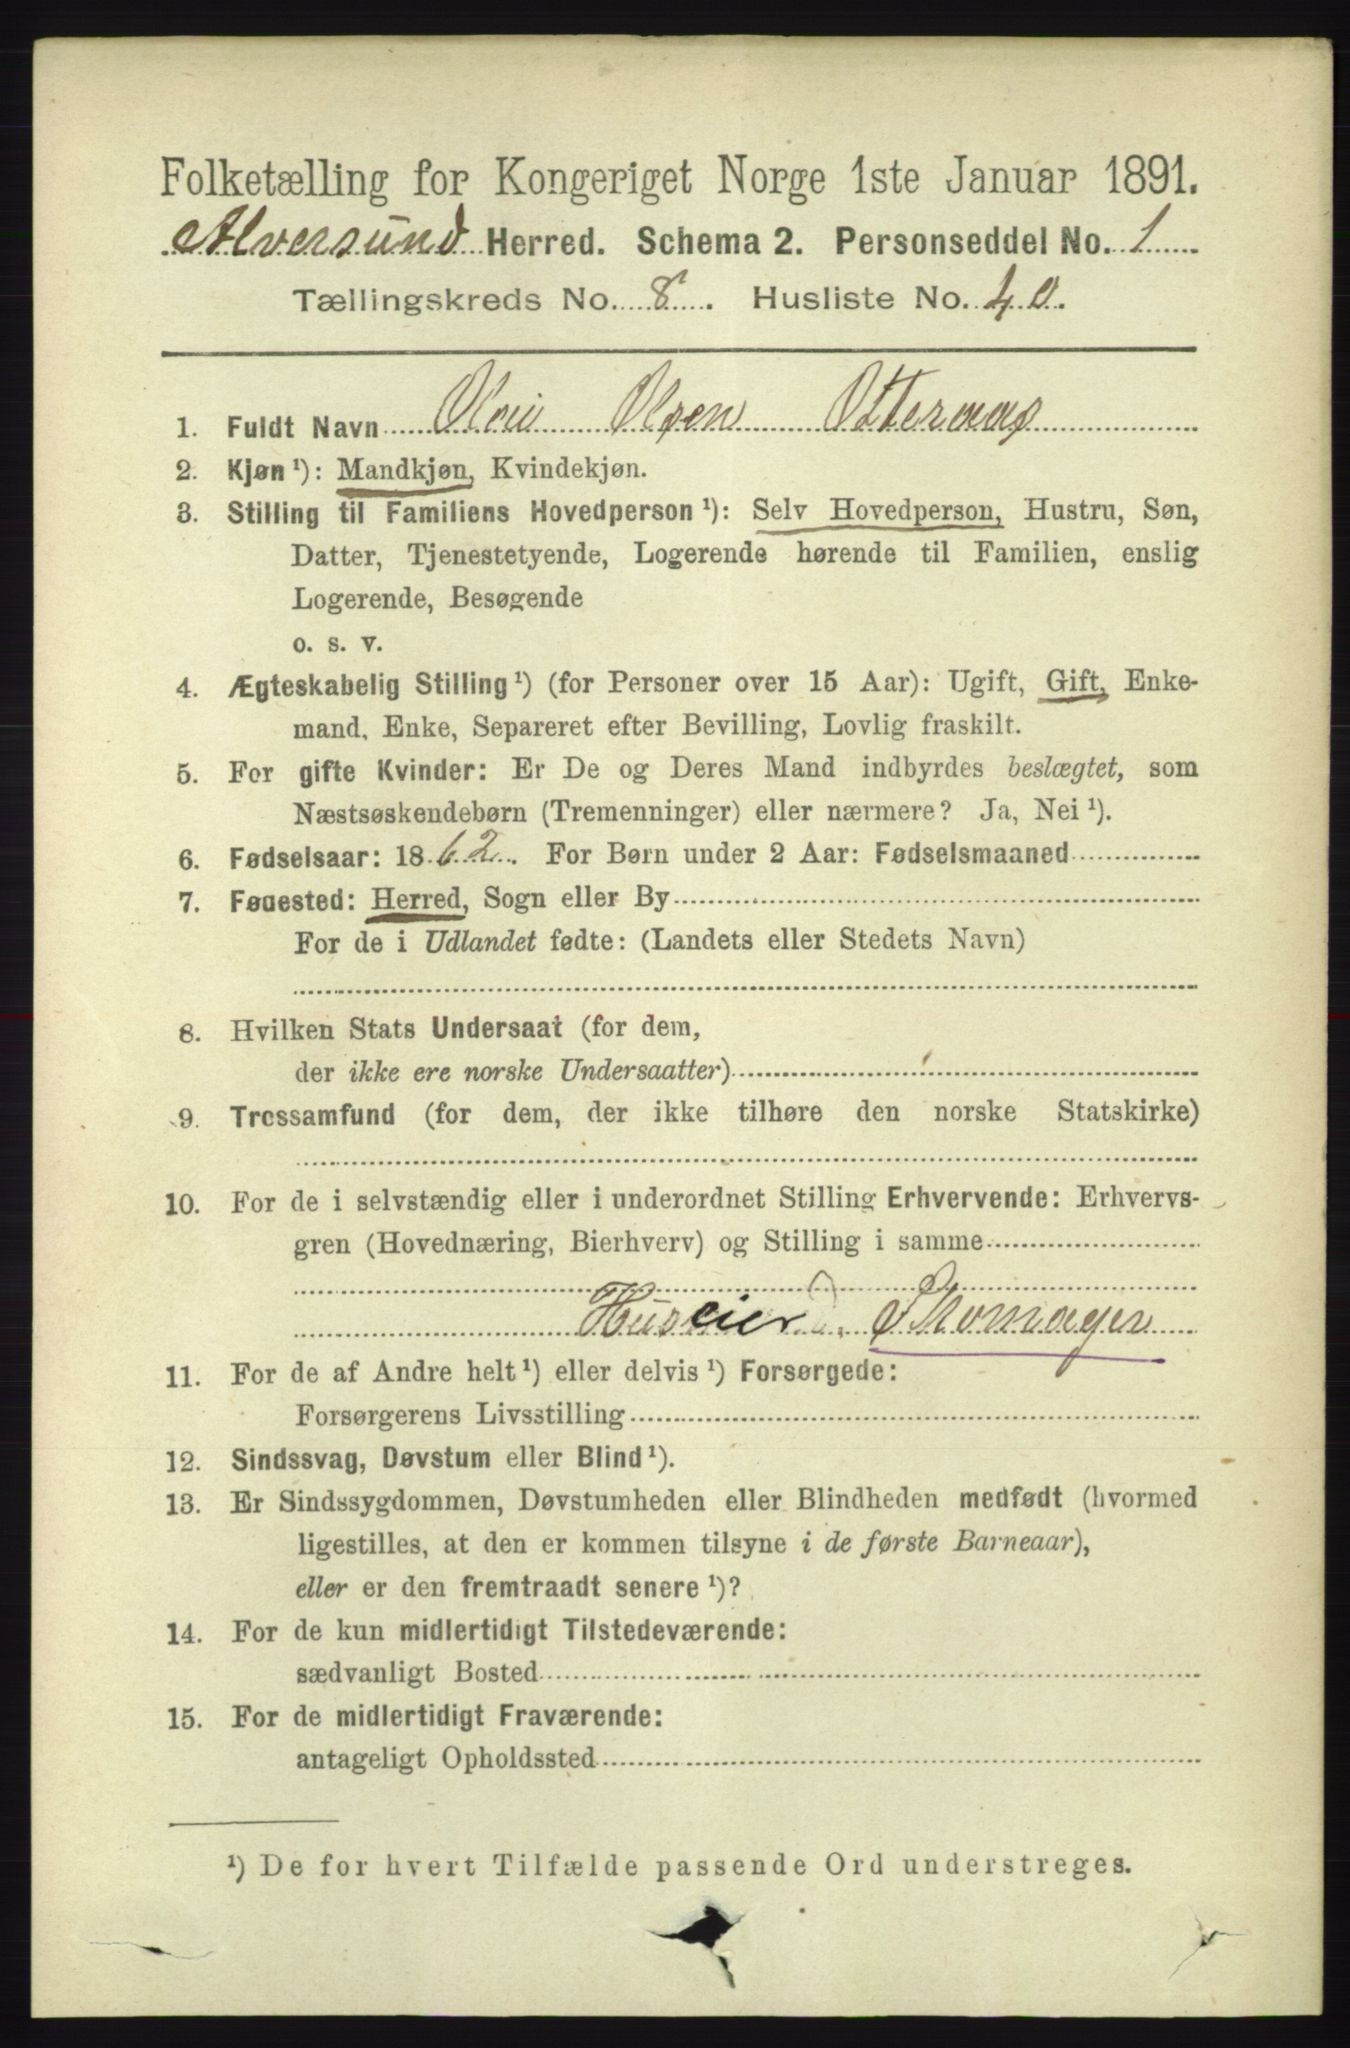 Folketælling for Kongeriget Norge 1ste Januar 1891.
Alversund Herred. Schema 2. Personseddel No. 1
Tællingskreds No. 8. Husliste No. 40.
1. Fuldt Navn Olai Olsen Otteraas
2. Kjøn ¹): Mandkjøn, Kvindekjøn.
3. Stilling til Familiens Hovedperson ¹): Selv Hovedperson, Hustru, Søn,
Datter, Tjenestetyende, Logerende hørende til Familien, enslig
Logerende, Besøgende
o. s. v.
4. Ægteskabelig Stilling ¹) (for Personer over 15 Aar): Ugift, Gift, Enke-
mand, Enke, Separeret efter Bevilling, Lovlig fraskilt.
5. For gifte Kvinder: Er De og Deres Mand indbyrdes beslægtet, som
Næstsøskendebørn (Tremenninger) eller nærmere? Ja, Nei ¹).
6. Fødselsaar: 1862. For Børn under 2 Aar: Fødselsmaaned
7. Fødested: Herred, Sogn eller By
For de i Udlandet fødte: (Landets eller Stedets Navn)
8. Hvilken Stats Undersaat (for dem,
der ikke ere norske Undersaatter)
9. Trossamfund (for dem, der ikke tilhøre den norske Statskirke)
10. For de i selvstændig eller i underordnet Stilling Erhvervende: Erhvervs-
gren (Hovednæring, Bierhverv) og Stilling i samme
Huseier Skomager
11. For de af Andre helt ¹) eller delvis ¹) Forsørgede:
Forsørgerens Livsstilling
12. Sindssvag, Døvstum eller Blind ¹).
13. Er Sindssygdommen, Døvstumheden eller Blindheden medfødt (hvormed
ligestilles, at den er kommen tilsyne i de første Barneaar),
eller er den fremtraadt senere ¹)?
14. For de kun midlertidigt Tilstedeværende:
sædvanligt Bosted
15. For de midlertidigt Fraværende:
antageligt Opholdssted
¹) De for hvert Tilfælde passende Ord understreges.